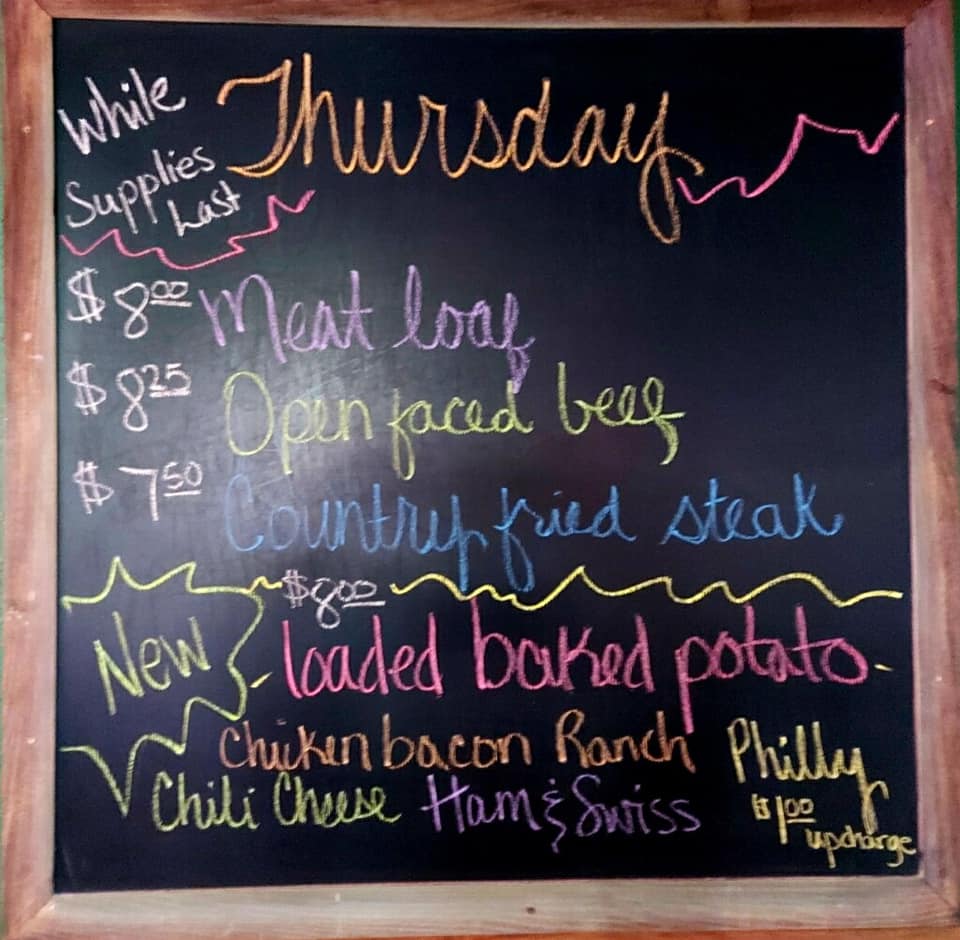 While
Supplies
Last
Thursday
$8.00 Meat loaf
$8.25 Open faced beef
$7.50 Country fried steak
New
$8.00
- loaded baked potato -
Chicken bacon Ranch
Chili Cheese Ham & Swiss
Philly
$1.00
upcharge